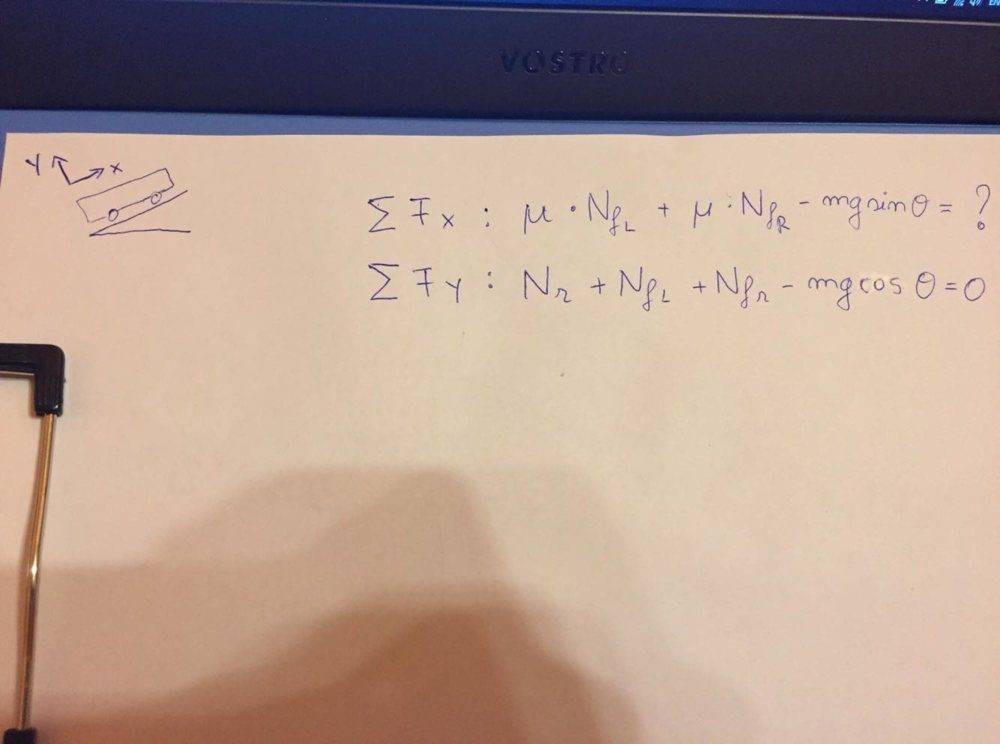 VOSTRO
Y X
∑ Fx : μ · NfL + μ · NfR - mg sin θ = ?
∑ Fy : Nr + NfL + Nfr - mg cos θ = 0